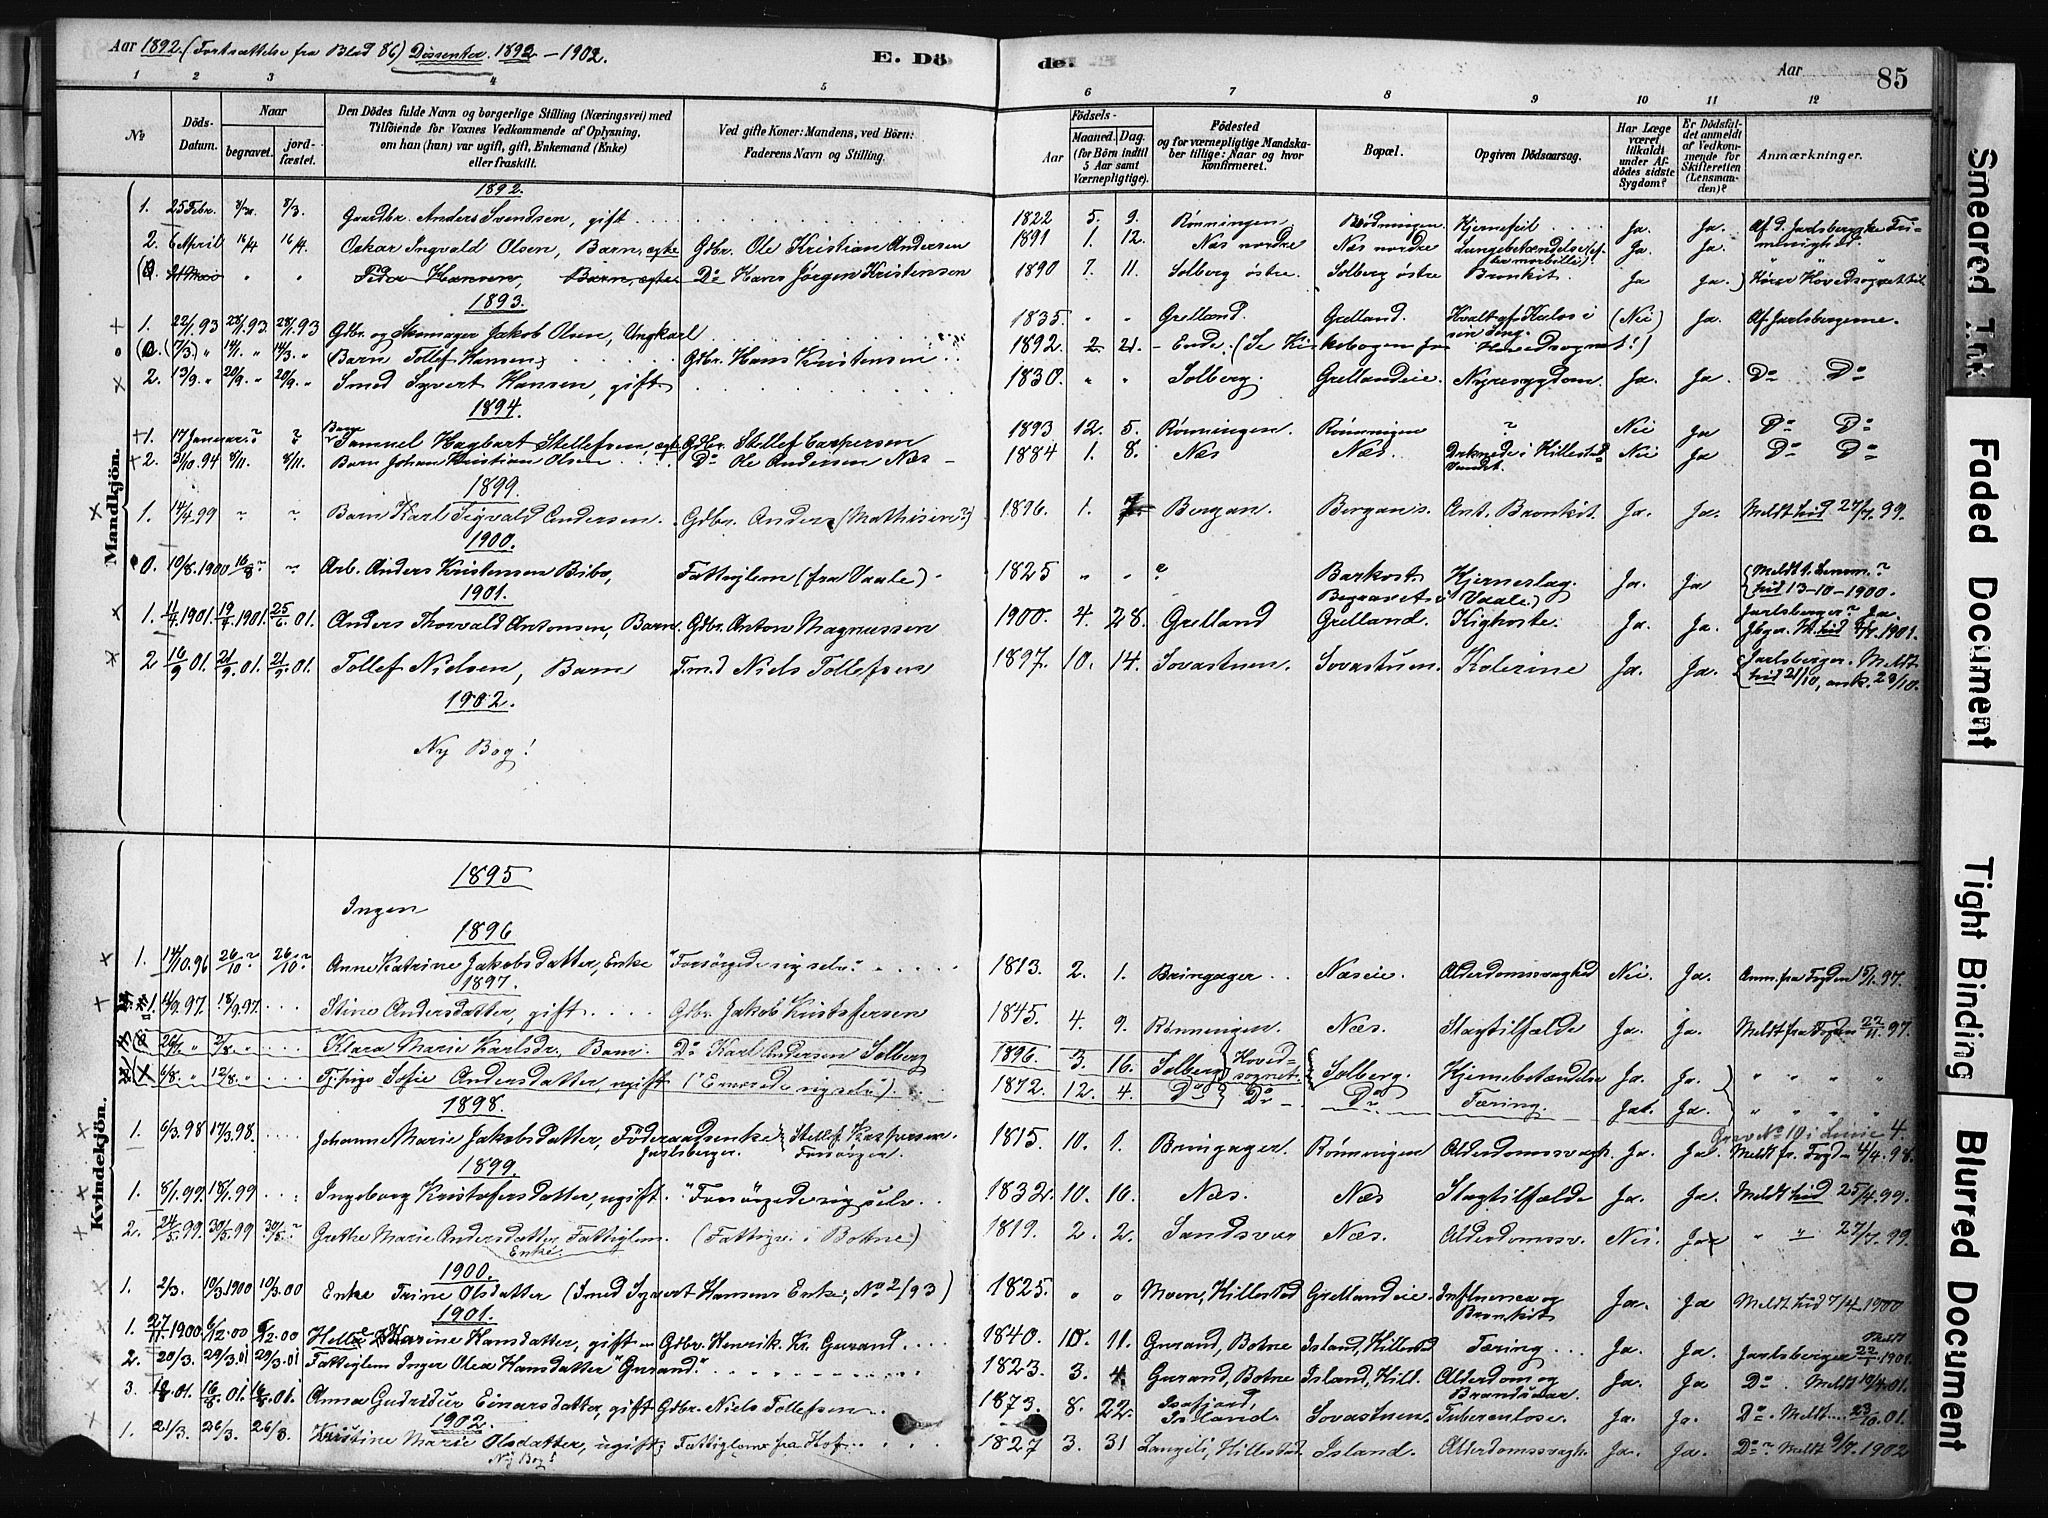 Aar 1892. (Fortsættelse fra Blad 86) Dissenter. 1892 – 1902.
E. Dö
de.
Aar
85
1 2 3 4 5 6 7 8 9 10 11 12
№
Döds-Datum.
Naar
begravet.
jord-fæstet.
Den Dödes fulde Navn og borgerlige Stilling (Næringsvei) med
Tilföiende for Voxnes Vedkommende af Oplysning,
om han (hun) var ugift, gift, Enkemand (Enke)
eller fraskilt.
Ved gifte Koner: Mandens, ved Börn:
Faderens Navn og Stilling.
Födsels-
Aar
Maaned. Dag.
(for Börn indtil
5 Aar samt
Værnepligtige).
Födested
og for værnepligtige Mandska-
ber tillige: Naar og hvor
konfirmeret.
Bopæl.
Opgiven Dödsaarsag.
Har Læge
været
tilkaldt
under Af-
dödes sidste
Sygdom?
Er Dödsfal-
det anmeldt
af Vedkom-
mende for
Skifteretten
(Lensman-
den)?
Anmærkninger.
Mandkjön.
1892.
1. 25 Febr. 8/3. Gaardbr. Anders Svendsen, gift 1822 5. 9. Rønningen Rødningen Hjernefeil Ja. Ja. Af d. Jarlsbergske Fri-
2. 6 April 16/4 16/4. Oskar Ingvald Olsen, Barn, egte Gbr. Ole Kristian Andersen 1891 1. 12. Næs nordre Næs nordre Lungebetændelse (ef- Ja. Ja. menighed.
ter morbilli).
21 Mai Peder Hansen, Barn, egte Do Hans Jørgen Kristensen 1890 7. 11. Solberg østre. Solberg østre Bronkit. Ja Ja.) Hører Hovedsognet til
1893.
1. 22/1.93 28/1.93 28/1.93 Gbr. og Skomager Jakob Olsen, Ungkarl 1835. Grelland. Grelland. Kvalt af Kulos i (Nei) Ja. Af Jarlsbergerne.
sin Seng.
(0. (7/3) 14/3. (Barn Tollef Hansen) Gbr. Hans Kristensen 1892. 2 21. Ende. (Se Kirkebogen for Hovedsognet!)
2. 13/9. 20/9. 20/9. Smed Syvert Hansen, gift 1830. Solberg. Grellandeie. Nyresygdom. Ja. Ja. Do Do
1894.
1. 17 Januar. ? ? Barn Samuel Hagbart Stellefsen, egte Gdbr. Stellef Caspersen 1893 12. 5. Rønningen. Rønningen ? Nei Ja Do Do
2. 31/10.94 8/11. 8/11. Barn Johan Kristian Olsen Do Ole Andersen Næs 1884 1. 8. Næs Næs. Druknede i Hillestad- Nei Ja Do Do
vandet.
1899.
1. 14/4.99 ? ? Barn Karl Sigvald Andersen. Gdbr. Anders (Mathisen?) 1896. 1. 7. Bergan. Bergan. Ant. Bronkit. Ja. Ja. Meldt hid 27/7. 99.
1900.
0. 10/8.1900 16/8 ? ? Arb. Anders Kristensen Bibo, Fattiglem (fra Vaale) 1825 ? Barkost Hjerneslag. Ja. Ja (Meldt t. Lensm.?
Begravet i Vaale.) hid 13-10-1900.
1901.
1. 11/4.1901. 19/4.1901. 25/6.01. Anders Thorvald Antonsen, Barn. Gdbr. Anton Magnussen 1900. 4. 28. Grelland Grelland. Kighoste. Ja. Ja. Jarlsberger? Ja
2 16/9 01. 21/9.01. 21/9.01. Tollef Nielsen, Barn Smed Niels Tollefsen 1897. 10. 14. Sovastuen. Sovastuen. Kolerine Ja. Ja. Jarlsberger. Meldt
hid 21/10, ank. 23/10.
1902.
Ny Bog!
Kvindekjön.
1895
Ingen
1896
1. 14/10.96 26/10 ? 26/10 ? Anne Katrine Jakobsdatter, Enke "Forsørgede sig selv." 1813. 2. 1. Bringager Næseie. Alderdomssvaghed Nei. Ja. Anm. fra Fogden 15/1.97.
1897.
1. 14/9.97. 18/9.97. Stine Andersdatter, gift Gbr. Jakob Kristofersen 1845. 4. 9. Rønningen. Næs. Slagtilfælde Ja. Ja. Meldt fra Fogden 22/11.97.
Klara Marie Karlsdr., Barn. Do Karl Andersen Solberg 1896. 3. 16. Solberg Hoved-sognet. Solberg. Hjernebetændelse Ja. Ja.
6/8. 12/8. Tj. pige Sofie Andersdatter, ugift ("Ernærede sig selv"). 1872. 12. 4. Do Do Do Tæring. Ja. Ja.
1898.
1. 6/3.98 17/3.98. Johanne Marie Jakobsdatter, Föderaadsenke Stellef Kaspersen 1815. 10. 1. Bringager. Rønningen Alderdomssvagh. Ja. Ja. Meldt fr. Fogden 4/4.98.
Jarlsberger. Forsørger. Grav No 19 i Linie 4.
1899.
1. 8/1.99. 18/1.99 Ingeborg Kristofersdatter, ugift. "Forsørgede sig selv. 1832. 10. 16. Næs. Næs Slagtilfælde Ja. Ja. Meldt hid 25/4.99.
2. 24/5.99. 30/5.99 30/5 ? Grethe Marie Andersdatter, Fattiglem. (Fattigv. i Botne) 1819. 2. 2. Sandsvær Næs. Alderdomssv. Nei. Ja 27/7.99.
Enke.
1900.
1. 2/3. 10/3 1900 10/3.00 Enke Trine Olsdatter (Smed Syvert Hansens Enke, No 2/93) 1825. Moen, Hillestad Grellandeie. Influensa og Ja. Ja Meldt hid 7/4.1900
Bronkit.
1901.
1. 27/11.1900 6/12.00 6/12.00 Karine Hansdatter, gift Gdbr. Henrik Kr. Gurand. 1840. 10. 11. Gurand, Botne Island, Hillestad Tæring. Ja. Ja. Jarlsberger 22/1.1901. Meldt
2. 20/3. 29/3.01 29/3.01 Fattiglem Inger Olea Hansdatter "Gurand." 1823. 3. 4. Gurand, Botne Island, Hill. Alderdom og Ja. Ja Do. Meldt 19/4.01.
Brandsaar.
3. 16/8.01. 16/8.01. Anna Gudridur Einarsdatter, gift Gdbr. Niels Tollefsen. 1873. 8. 22. Isafjord, Island. Sovastuen. Tuberculose. Ja. Ja. Do. Meldt 23/10.01.
1902.
1. 21/3. 26/3. 26/3. Kristine Marie Olsdatter, ugift; Fattiglem fra Hof. 1827 3. 31 Langeli, Hillestad Island. Alderdomssvagh. Ja. Ja. Do? Meldt 9/4.1902
Ny Bog!
Smeared Ink
Faded Document
Tight Binding
Blurred Document